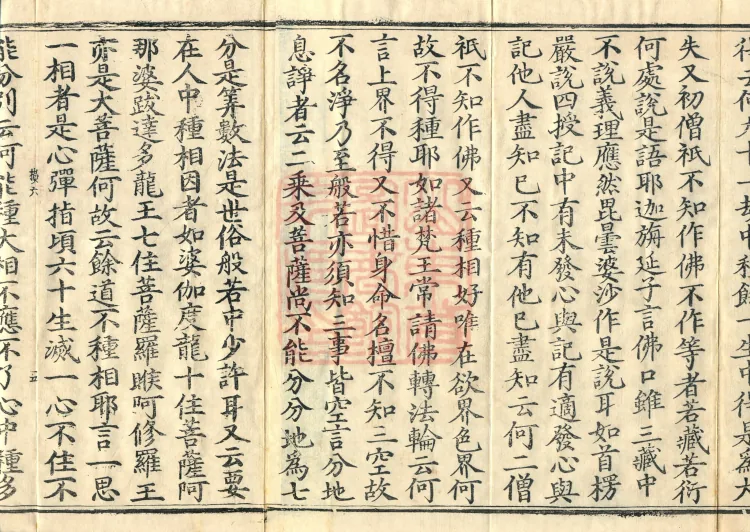 劫中種餘一生中得是為大
失又初僧祇不知作佛不作等者若藏若衍
何處說是語耶迦旃延子言佛口雖三藏中
不說義理應然毘曇婆沙作是說耳如首楞
嚴說四授記中有未發心與記有適發心與
記他人盡知已不知有他已盡知云何二僧
祇不知作佛又云種相好唯在欲界色界何
故不得種耶如諸梵王常請佛轉法輪云何
言上界不得又不惜身命名檀不知三空故
不名淨乃至般若亦須知三事皆空言分地
息諍者云二乘及菩薩尚不能分分地為七
分是筭數法是世俗般若中少許耳又云要
在人中種相因者如婆伽度龍十住菩薩阿
那婆跋達多龍王七住菩薩羅睺阿修羅王
亦是大菩薩何故云餘道不種相耶言一思
一相者是心彈指頃六十生滅一心不住不
六 五
能分別云何能種大相不應不了心中種多